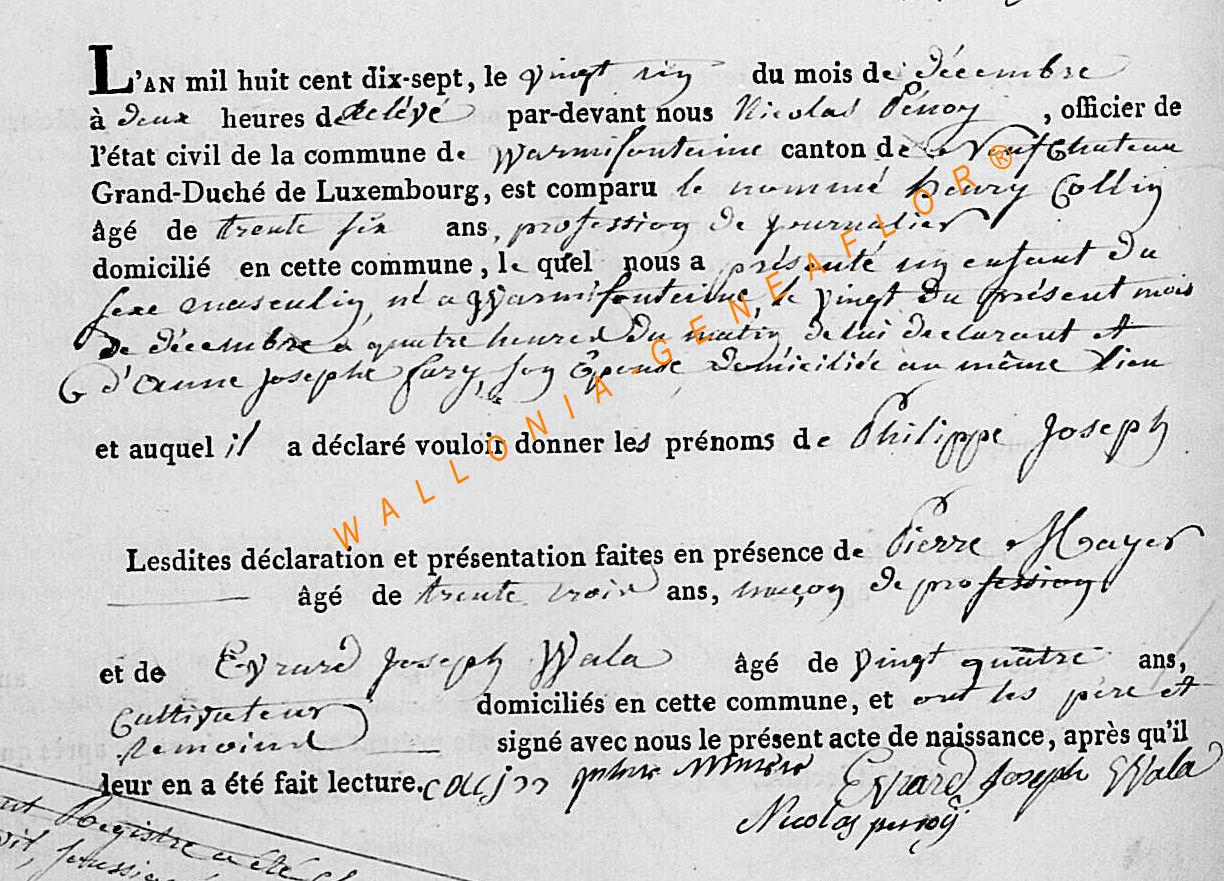 L'AN mil huit cent dix-sept, le vingt un du mois de décembre
à deux heures de relévé par-devant nous Nicolas Pénoy, officier de
l'état civil de la commune de Warmifontaine canton de Neufchateau
Grand-Duché de Luxembourg, est comparu le nommé henry Collin
âgé de trente six ans, profession de journalier
domicilié en cette commune, le quel nous a présenté un enfant du
sexe masculin, né a Warmifontaine, le vingt du présent mois
de décembre a quatre heures du matin, de lui declarant et
d'anne Josephe Jury, son épouse, domiciliée au même lieu
et auquel il a déclaré vouloir donner les prénoms de Philippe Joseph
Lesdites déclaration et présentation faites en présence de Pierre Mayer
âgé de trente trois ans, maçon de profession
et de Evrard Joseph Wala âgé de vingt quatre ans,
Cultivateur domiciliés en cette commune, et ont les père et
temoins signé avec nous le présent acte de naissance, après qu'il
leur en a été fait lecture.
Evrard Joseph Wala
Nicolas penoÿ
Registre a été
WALLONIA-GENEAFLOR®